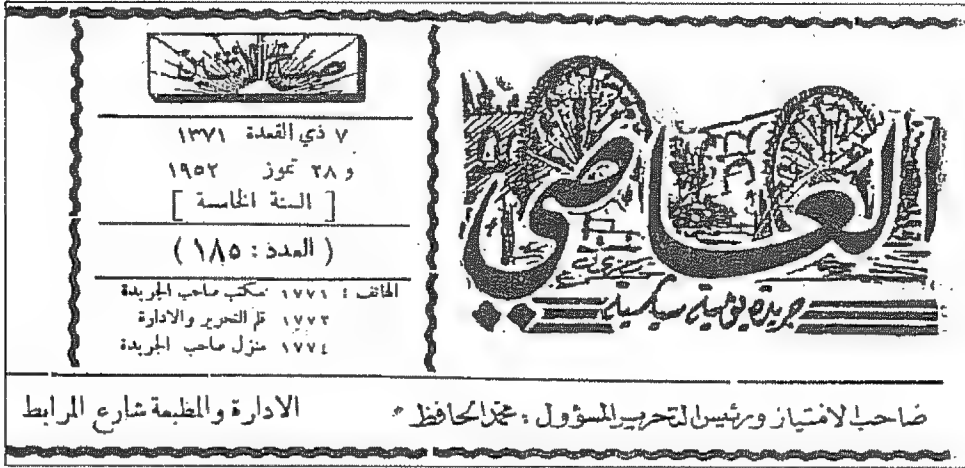 العاصي
جريدة يومية سياسية
٧ ذي القعدة ١٣٧١
و ٢٨ تموز ١٩٥٢
[ السنة الخامسة ]
( العدد : ١٨٥ )
الهاتف : ١٧٧١ مكتب صاحب الجريدة
١٧٧٣ قلم التحرير والادارة
١٧٧٤ منزل صاحب الجريدة
صاحب الامتياز ورئيس التحرير المسؤول : محمد الحافظ * الادارة والمطبعة شارع المرابط